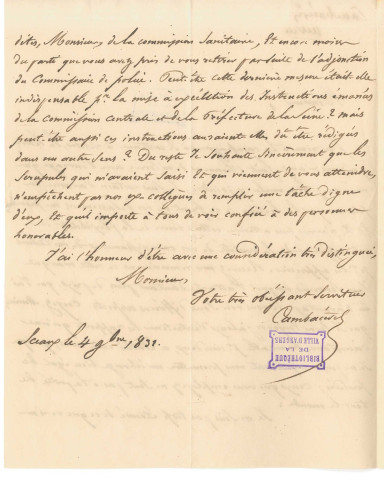 dites, Monsieur, de la commission Sanitaire, Et encore moins
du parti que vous avez pris de vous retirer par suite de l'adjonction
du Commissaire de police. Peut être cette dernière mesure était elle
indispensable pr. la mise à exécution des Instructions émanées
de la Commission centrale et de la Préfecture de la Seine ? mais
peut être aussi ces instructions auraient elles dû être rédigées
dans un autre Sens ? Du reste Je Souhaite Sincèrement que les
Scrupuls qui m'avaient Saisi Et qui viennent de vous atteindre,
n'empêchent pas nos ex-collègues de remplir une tâche digne
d'eux, Et qu'il importe à tous de voir confiée à des personnes
honorables.
J'ai l'honneur d'être avec une considération très distinguée,
Monsieur,
Votre très obéissant Serviteur
Cambacérès
Sceaux le 4 9bre 1831.
BIBLIOTHÈQUE
DE LA
VILLE D'ANGERS